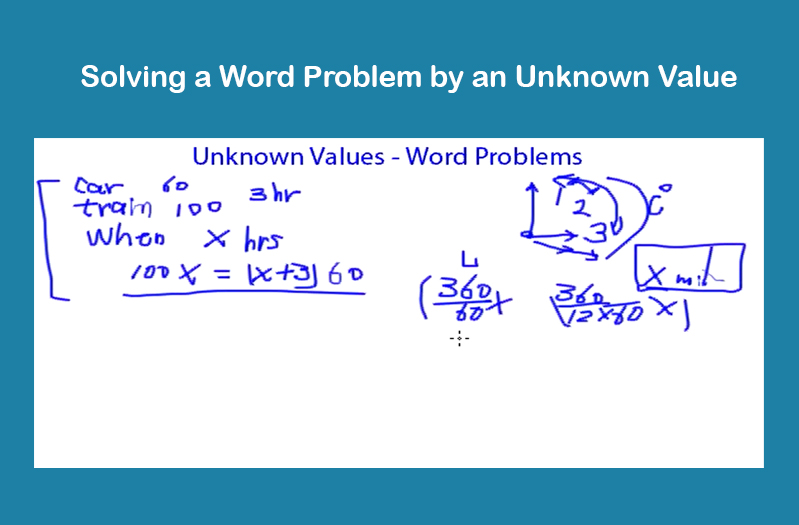 Solving a Word Problem by an Unknown Value
Unknown Values - Word Problems
Car 60
train 100 3 hr
When X hrs
100 X = (x+3) 60
1
2
3
C°
L
X mil
(360/60 x
360/(12 x 60) x)